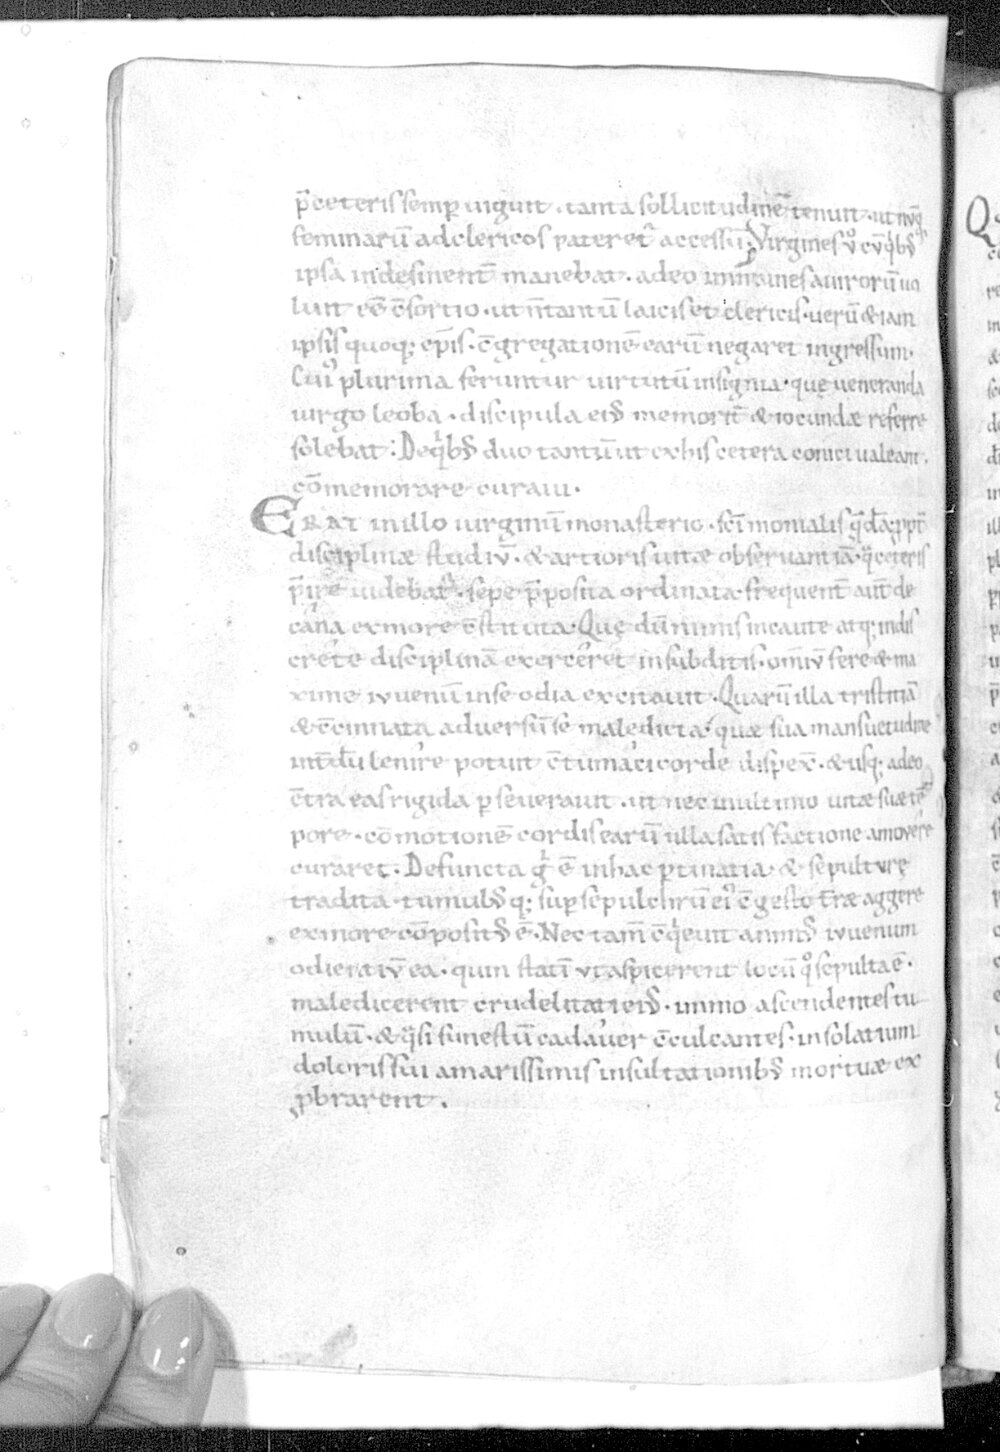 p̄ceteris semꝑ uiguit. tanta sollicitudine tenuit. ut nūq̄
feminarū ad clericos pateret᷑ accessū; Virgines ů cū qͥbꝰ
ipsa indesinent̄ manebat. adeo inmunes a uirorū uo
luit eē c̄sortio. ut n̄ tantū laicis et clericis. uerū & iam
ipsis quoq; ep̄is. c̄gregationē earū negaret ingressum.
Cuiꝰ plurima feruntur uirtutū insignia. quę ueneranda
uirgo leoba. discipula eiꝰ memorit̄ & iocundæ referre
solebat; De qͥbꝰ duo tantū ut ex his cetera conici ualeant.
cōmemorare curaui.
ERAT in illo uirginū monasterio. sc̄imonialis q̄dā. ꝓpt̄
disciplinæ studiū. & artioris uitæ obseruantiā. q̄ ceteris
p̄ire uidebat᷑. sepe p̄posita ordinata. frequent̄ aut̄ de
cana ex more c̄stituta. Quę dū nimis incaute atq; indis
crete disciplinā exerceret in subditis. omniū fere & ma
xime iuuenū in se odia excitauit. Quarū illa tristitiā
& c̄cinnata aduersū se maledicta. quæ sua mansuetudine
int̄dū lenire potuit c̄tumaci corde dispex̄. & usq; adeo
c̄tra eas rigida ꝑseuerauit. ut nec in ultimo uitæ suæ tē
pore. cōmotionē cordis earū illa satisfactione amouere
curaret. Defuncta gͥ ē in hac ꝑtinatia. & sepulturę
tradita. tumulꝰ q; suꝑ sepulchrū eiꝰ c̄gesto t̄ræ aggere
ex more cōpositꝰ ē. Nec tam̄ c̄qͥeuit animꝰ iuuenum
odientiū ea. quin statī ut aspicerent locū qͦ sepulta ē.
maledicerent crudelitati eiꝰ. immo ascendentes tu
mulū. & q̄si funestū cadauer c̄culcantes. in solatium
doloris sui amarissimis insultationibꝰ mortuæ ex
ꝓbrarent.